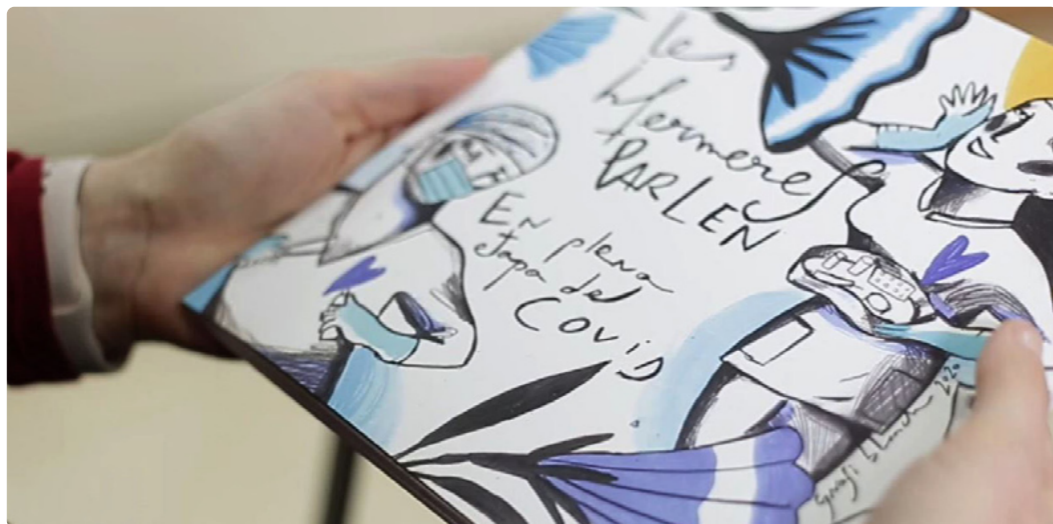 Les
Hermeres
PARLEN
En plena
etapa del
Covid
2020